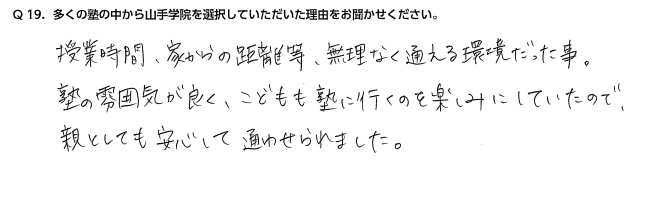 Q 19．多くの塾の中から山手学院を選択していただいた理由をお聞かせください。
授業時間、家からの距離等、無理なく通える環境だった事。
塾の雰囲気が良く、こどもも塾に行くのを楽しみにしていたので、
親としても安心して通わせられました。